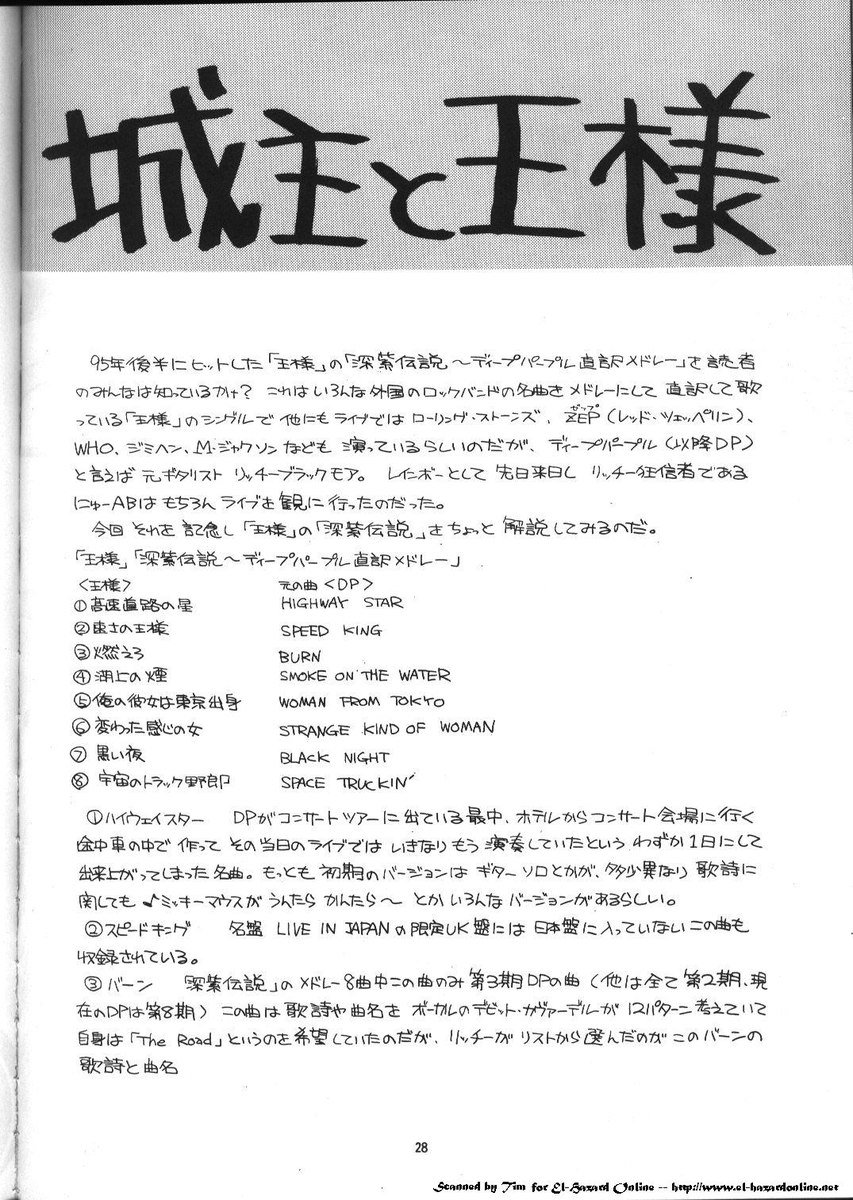 城主と王様
95年後半にヒットした「王様」の「深紫伝説～ディープパープル直訳メドレー」を読者
のみんなは知っているかな? これはいろんな外国のロックバンドの名曲をメドレーにして直訳して歌
っている「王様」のシングルで他にもライブではローリング・ストーンズ、ZEP(レッド・ツェッペリン)、
WHO、ジミヘン、M・ジャクソンなども演っているらしいのだが、ディープパープル(以降DP)
と言えば元ギタリスト リッチーブラックモア。レインボーとして先日来日し リッチー狂信者である
にゅーABはもちろんライブを観に行ったのだった。
今回それを記念し「王様」の「深紫伝説」をちょっと解説してみるのだ。
「王様」「深紫伝説～ディープパープル直訳メドレー」
<王様> 元の曲<DP>
①高速道路の星 HIGHWAY STAR
②速さの王様 SPEED KING
③燃えろ BURN
④湖上の煙 SMOKE ON THE WATER
⑤俺の彼女は東京出身 WOMAN FROM TOKYO
⑥変わった感じの女 STRANGE KIND OF WOMAN
⑦黒い夜 BLACK NIGHT
⑧宇宙のトラック野郎 SPACE TRUCKIN'
①ハイウェイスター DPがコンサートツアーに出ている最中、ホテルからコンサート会場に行く
途中車の中で作って その当日のライブでは いきなりもう演奏していたという わずか1日にして
出来上がってしまった名曲。もっとも初期のバージョンは ギターソロとかが、多少異なり 歌詩に
関しても ♪ミッキーマウスが うんたら かんたら～ とか いろんなバージョンがあるらしい。
②スピードキング 名盤 LIVE IN JAPANの限定UK盤には日本盤に入っていないこの曲も
収録されている。
③バーン 「深紫伝説」のメドレー8曲中この曲のみ第3期DPの曲(他は全て第2期、現
在のDPは第8期) この曲は歌詩や曲名を ボーカルのデビット・カヴァーデルが 12パターン考えていて
自身は「The Road」というのを希望していたのだが、リッチーがリストから選んだのが このバーンの
歌詩と曲名
28
Scanned by Tim for El-Hazard Online -- http://www.el-hazardonline.net